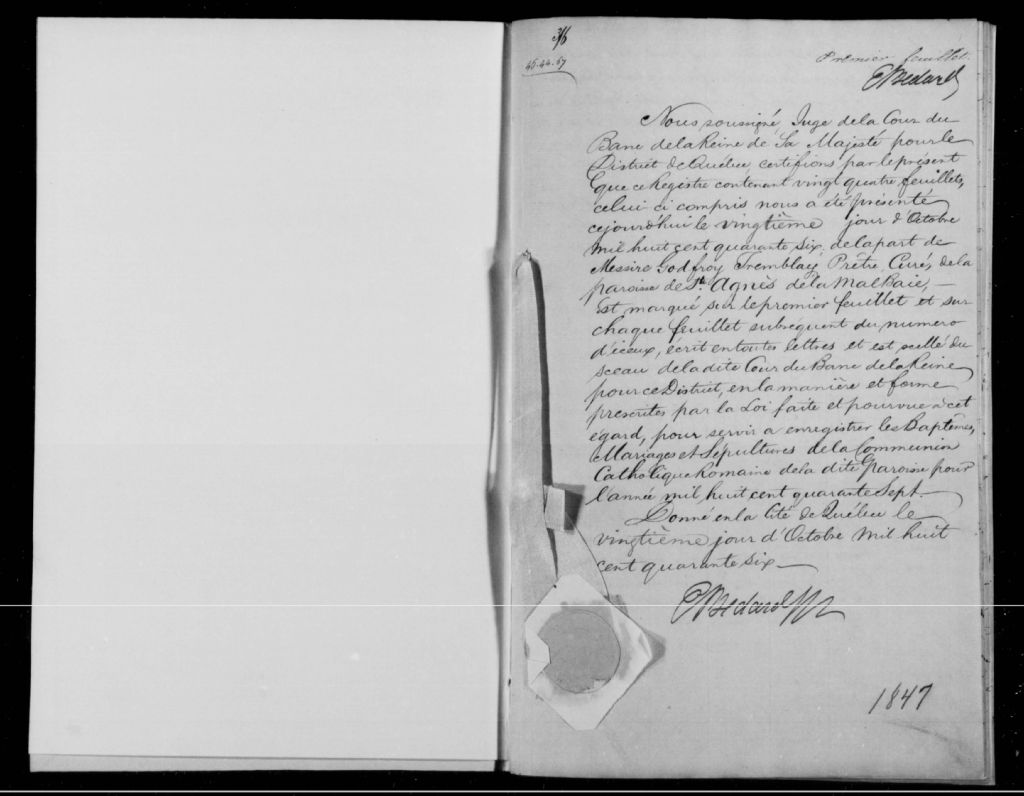 3/6
45.44.57
Premier feuillet.
E Bedard
Nous soussigné, Juge de la Cour du
Banc de la Reine de Sa Majesté pour le
District de Québec, certifions par le présent
que ce Registre contenant vingt quatre feuillets,
celui ci compris nous a été présenté
cejourd'hui le vingtième jour d'Octobre
mil huit cent quarante six, de la part de
Messire Godfroy Tremblay, Prêtre, Curé, de la
paroisse de Ste Agnès de la Malbaie, —
Est marqué sur le premier feuillet et sur
chaque feuillet subséquent du numero
d'iceux, écrit en toutes lettres et est scellé du
sceau de la dite Cour du Banc de la Reine
pour ce District, en la manière et forme
prescrites par la Loi faite et pourvue à cet
égard, pour servir a enregistrer les Baptêmes,
Mariages et Sépultures de la Communion
Catholique Romaine de la dite Paroisse pour
l'année mil huit cent quarante Sept. —
Donné en la Cité de Québec le
vingtième jour d'Octobre mil huit
cent quarante six —
E Bedard
1847